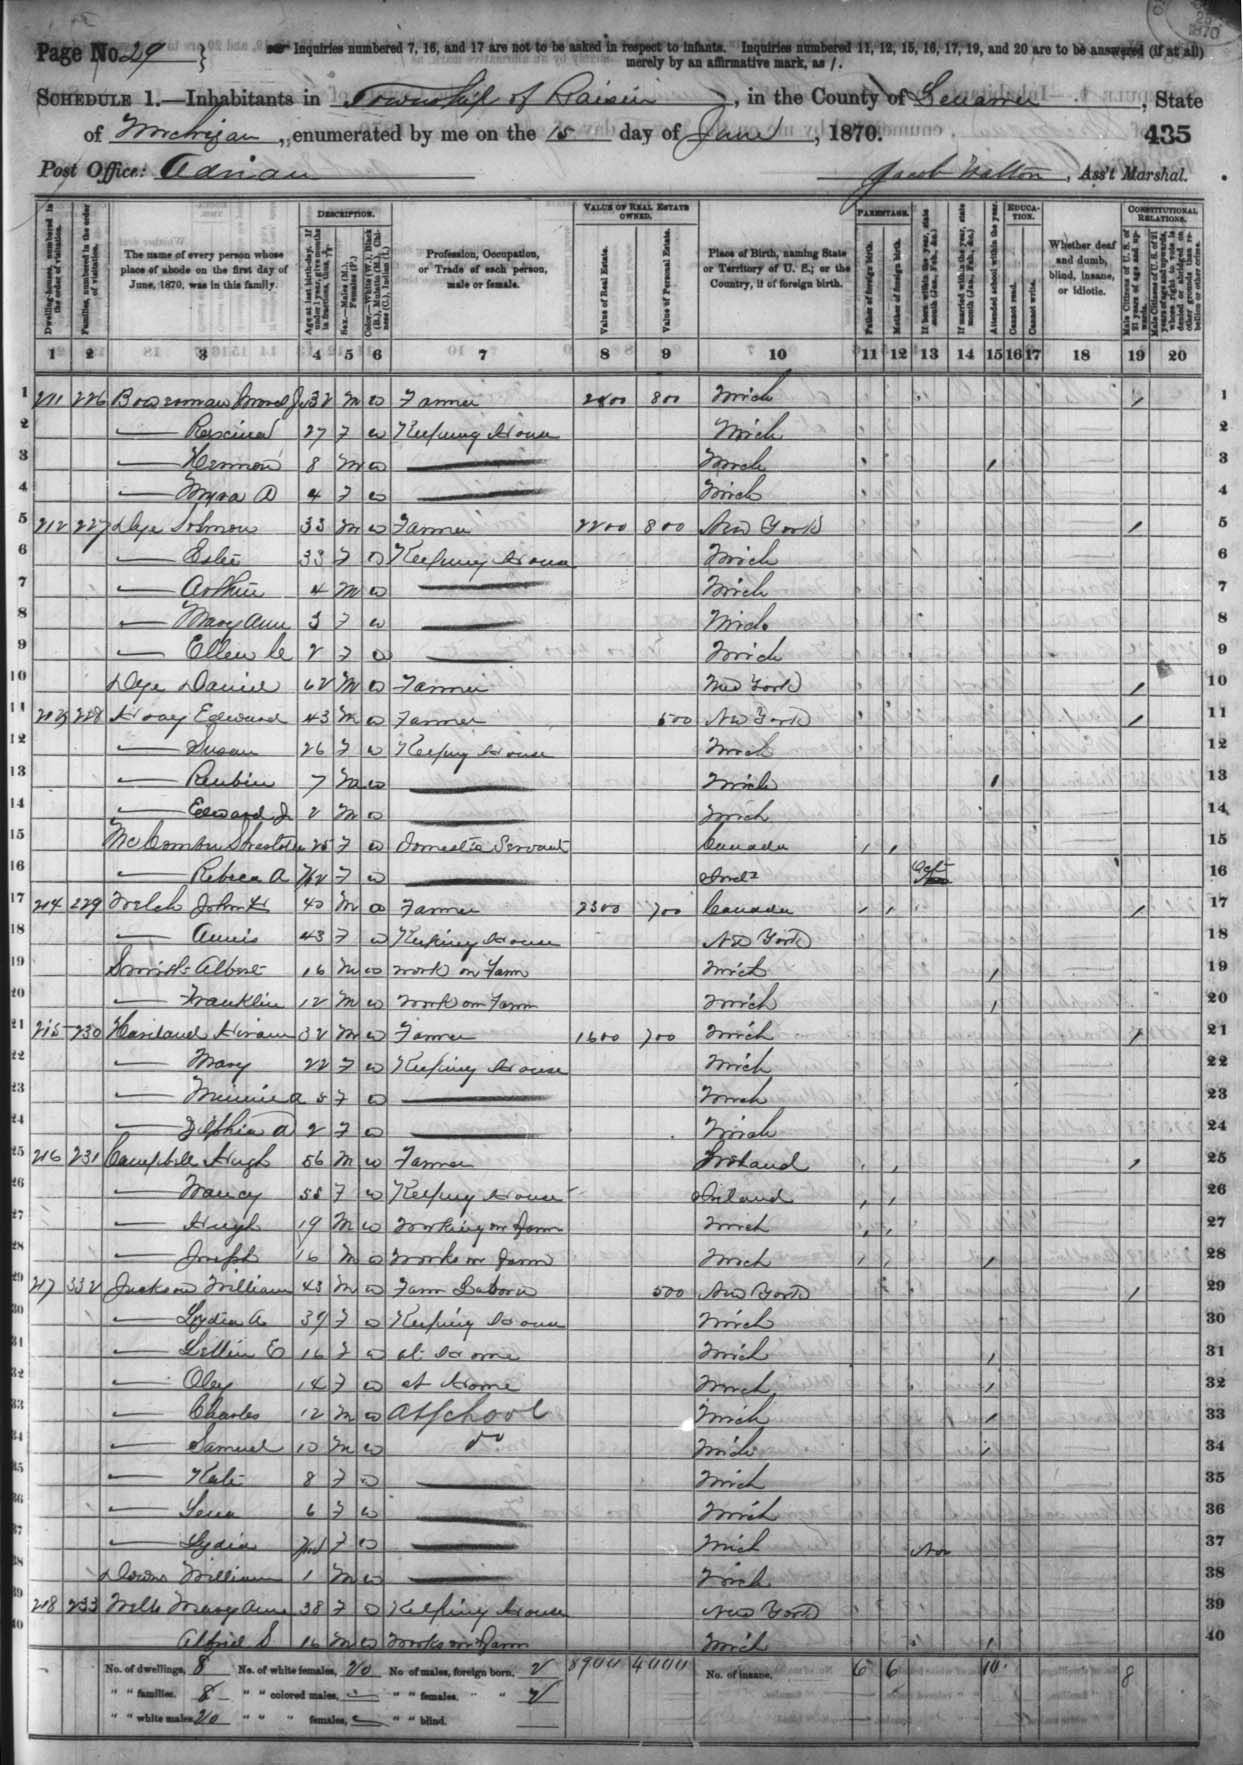 Page No. 29 } Inquiries numbered 7, 16, and 17 are not to be asked in respect to infants. Inquiries numbered 11, 12, 15, 16, 17, 19, and 20 are to be answered (if at all)
merely by an affirmative mark, as /.
SCHEDULE 1.—Inhabitants in Township of Raisin, in the County of Lenawee, State
of Michigan, enumerated by me on the 15 day of June, 1870. 435
Post Office: Adrian Jacob Walton, Ass't Marshal.
DESCRIPTION. VALUE OF REAL ESTATE OWNED. PARENTAGE. EDUCATION. CONSTITUTIONAL RELATIONS.
Dwelling-houses, numbered in the order of visitation. Families, numbered in the order of visitation. The name of every person whose place of abode on the first day of June, 1870, was in this family. Age at last birth-day. If under 1 year, give months in fractions, thus, Sex.—Males (M.), Females (F.) Color.—White (W.), Black (B.), Mulatto (M.), Chinese (C.), Indian (I.) Profession, Occupation, or Trade of each person, male or female. Value of Real Estate. Value of Personal Estate. Place of Birth, naming State or Territory of U. S.; or the Country, if of foreign birth. Father of foreign birth. Mother of foreign birth. If born within the year, state month (Jan., Feb., &c.) If married within the year, state month (Jan., Feb., &c.) Attended school within the year. Cannot read. Cannot write. Whether deaf and dumb, blind, insane, or idiotic. Male Citizens of U. S. of 21 years of age and upwards. Male Citizens of U. S. of 21 years of age and upwards, whose right to vote is denied or abridged on other grounds than rebellion or other crime.
1 2 3 4 5 6 7 8 9 10 11 12 13 14 15 16 17 18 19 20
1 211 226 32 M W Farmer 800 Mich / 1
2 — 27 F W Keeping House Mich 2
3 — Hermon 8 M W — Mich / 3
4 — Myra A 4 F W — Mich 4
5 212 227 Dye Solmon 33 M W Farmer 2200 800 New York / 5
6 — 33 F W Keeping House Mich 6
7 — Arthur 4 M W — Mich 7
8 — Mary Ann 3 F W — Mich 8
9 — Ellen 2 F W — Mich 9
10 Dye Daniel 62 M W Farmer New York / 10
11 213 228 Hoag Edward 43 M W Farmer 500 New York / 11
12 — Susan 26 F W Keeping House Mich 12
13 — Reubin 7 M W — Mich / 13
14 — Edward J 2 M W — Mich 14
15 25 F W Domestic Servant Canada / / 15
16 — Rebeca A F W — 16
17 214 229 Welch John H 40 M W Farmer 2300 700 Canada / / / 17
18 — Annis 43 F W Keeping House New York 18
19 Smith Albert 16 M W work on Farm Mich / 19
20 — Franklin 12 M W work on Farm Mich / 20
21 215 230 Haviland Hiram 32 M W Farmer 1600 700 Mich / 21
22 — Mary 22 F W Keeping House Mich 22
23 — Minnie A 5 F W — Mich 23
24 — Zilphia A 2 F W — Mich 24
25 216 231 Campbell Hugh 56 M W Farmer Ireland / / / 25
26 — Nancy 55 F W Keeping House Ireland / / 26
27 — Hugh 19 M W Working on Farm Mich / / 27
28 — Joseph 16 M W Works on Farm Mich / / / 28
29 217 332 Jackson William 43 M W Farm Labor 500 New York / 29
30 — Lydia A 39 F W Keeping House Mich 30
31 — Lillin E 16 F W at Home Mich / 31
32 — Oley 14 F W at Home Mich / 32
33 — Charles 12 M W At School Mich / 33
34 — Samuel 10 M W do Mich / 34
35 — Kate 8 F W — Mich 35
36 — Lena 6 F W — Mich 36
37 — Lydia F W — Mich Nov 37
38 Downs William 1 M W — Mich 38
39 218 233 Wells Mary Ann 38 F W Keeping House New York 39
40 Alfred S 16 M W Works on Farm Mich / 40
No. of dwellings, 8 No. of white females, 20 No. of males, foreign born, 2 8900 4000 No. of insane, 6 6 10 8
" " families, 8 " " colored males, — " " females, " " 2
" " white males, 20 " " " females, — " " blind.